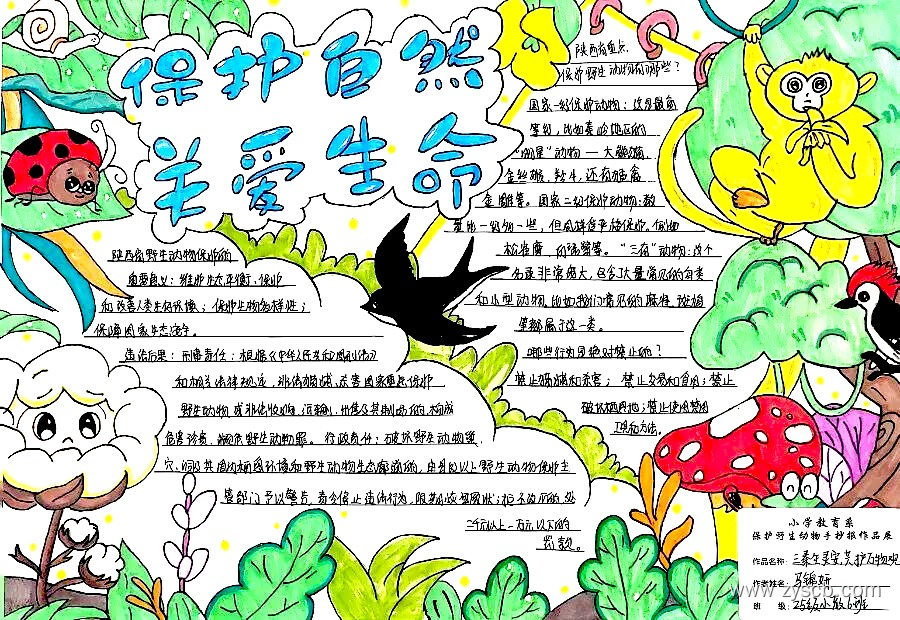 保护自然
关爱生命
陕西省野生动物保护的
重要意义：维护生态平衡、保护
和改善人类生存环境；保护生物多样性；
保障国家生态安全。
违法后果：刑事责任：根据《中华人民共和国刑法》
和相关法律规定，非法猎捕、杀害国家重点保护
野生动物 或非法收购、运输、出售及其制品的，构成
危害珍贵、濒危野生动物罪。行政责任：破坏野生动物巢、
穴、洞及其
野生动物保护主
管部门予以警告，责令停止违法行为，限期恢复原状；拒不改正的，处
一万元以下的
罚款。
陕西省重点
保护野生动物有哪些？
国家一级保护动物：这是最高
等级，比如秦岭地区的
“明星”动物 — 大熊猫、
金丝猴、羚牛，还有
金雕等。国家二级保护动物：数
量比一级
“三有”动物：这个
名录非常庞大，包含大量常见的鸟类
和小型动物，比如我们常见的麻雀、
等都属于这一类。
哪些行为是绝对禁止的？
禁止猎捕和杀害； 禁止交易和食用；禁止
破坏栖息地；禁止使用禁用
工具和方法。
小学教育系
保护野生动物手抄报作品展
作品名称：
作者姓名：马锦妍
班 级：
www.zyscb.com